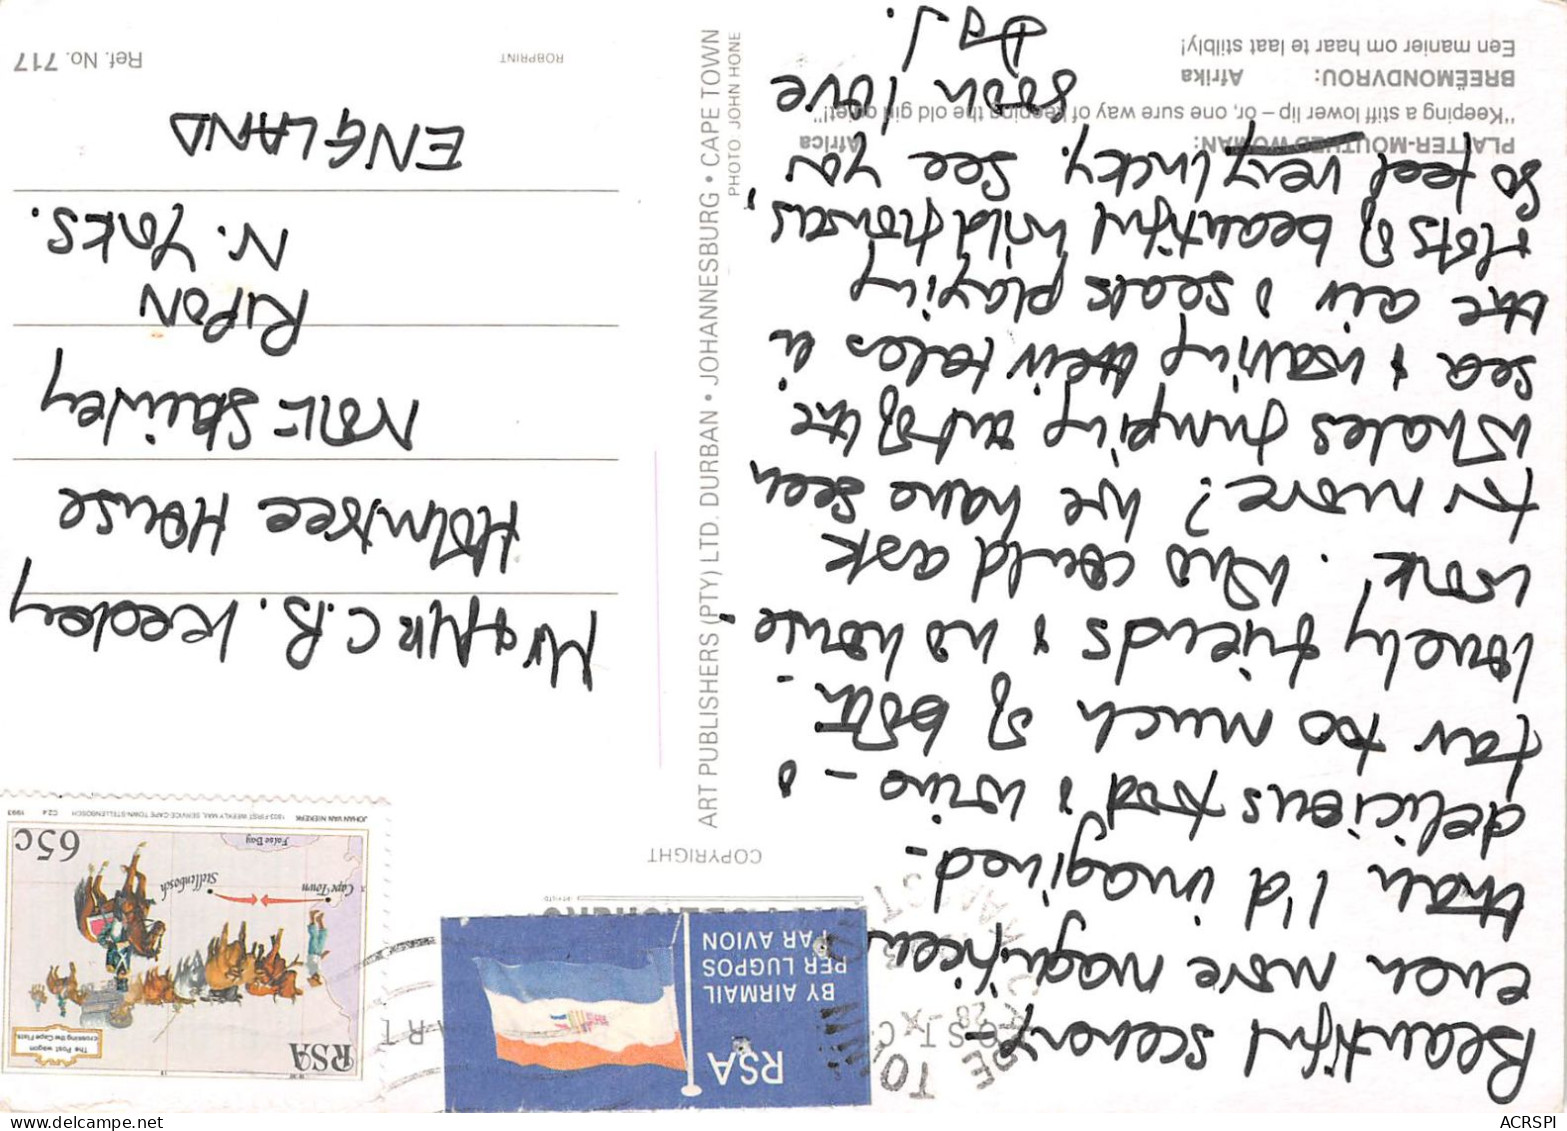 Beautiful scenery -
even more magnificent
than I'd imagined -
delicious food & wine - &
far too much of both -
lovely friends & no house-
work! . Who could ask
for more? We have seen
whales jumping out of the
sea & waving their tales in
the air & seals playing
& lots of beautiful wild flowers,
so feel very lucky. See you
soon love
PLATTER-MOUTHED WOMAN: Africa
"Keeping a stiff lower lip – or, one sure way of keeping the old girl quiet!"
BREËMONDVROU: Afrika
Een manier om haar te laat stilbly!
ART PUBLISHERS (PTY) LTD. DURBAN • JOHANNESBURG • CAPE TOWN
PHOTO: JOHN HONE
COPYRIGHT
RSA
BY AIRMAIL
PER LUGPOS
PAR AVION
28 -X
RSA
The Post wagon
crossing the Cape Flats
Cape Town
Stellenbosch
False Bay
65c
JOHAN VAN NIEKERK 1803 FIRST WEEKLY MAIL SERVICE-CAPE TOWN-STELLENBOSCH CZ4 1993
Mr & Mrs C.B. Keeley
Holmtree House
North Stainley
RIPON
N. Yorks.
ENGLAND
ROBPRINT
Ref. No. 717
ACRSPI